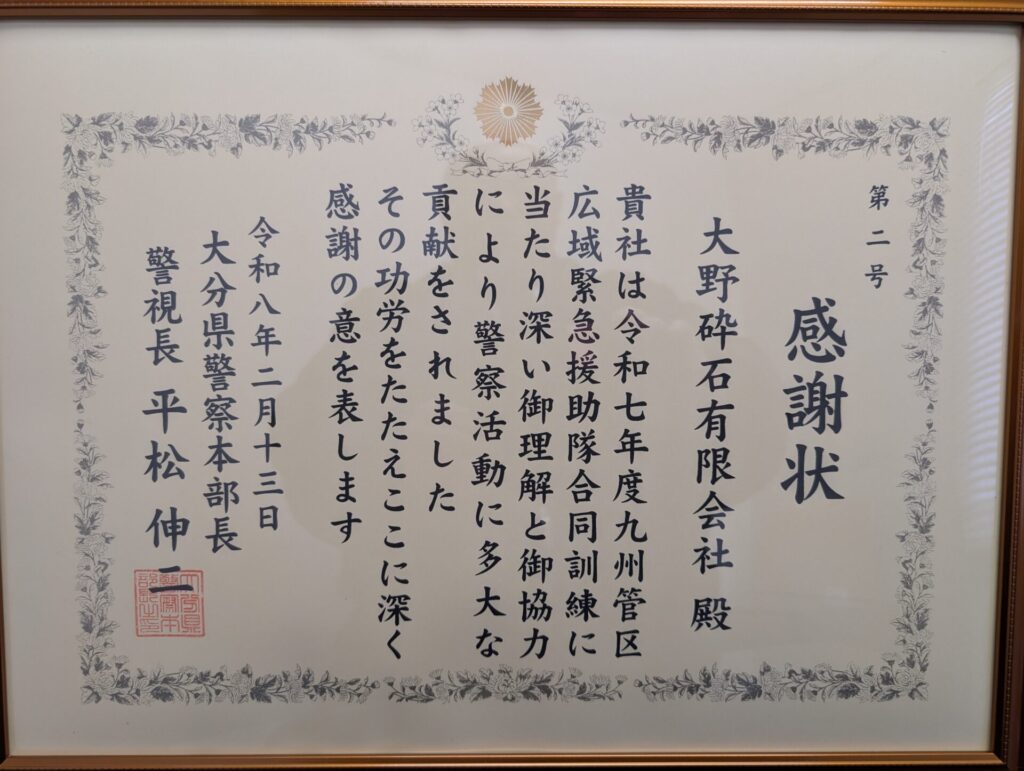 第二号
感謝状
大野砕石有限会社 殿
貴社は令和七年度九州管区
広域緊急援助隊合同訓練に
当たり深い御理解と御協力
により警察活動に多大な
貢献をされました
その功労をたたえここに深く
感謝の意を表します
令和八年二月十三日
大分県警察本部長
警視長 平松伸二